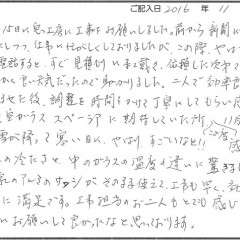 ご記入日 2016 年 11
15日に窓工房に工事をお願いしました。前から新聞に
にしつつ、仕事に忙がしくしておりましたが、この際、やは
電話すると、すぐ見積りに来て戴き、依頼した次
かい良い天気だったので助かりました。二人で効率良
させた後、調整を時間をかけて丁寧にしてもらい
真空ガラス スペーシア
雪が降って寒い日に、やはり、すごいなと!!
の冷たさと 中のガラスの温度の違いに驚き
のアルミのサッシがそのまま使えて、工事も早く、
に満足です。工事担当のお二人もとても感じ
にお願いして良かったなと思っております。